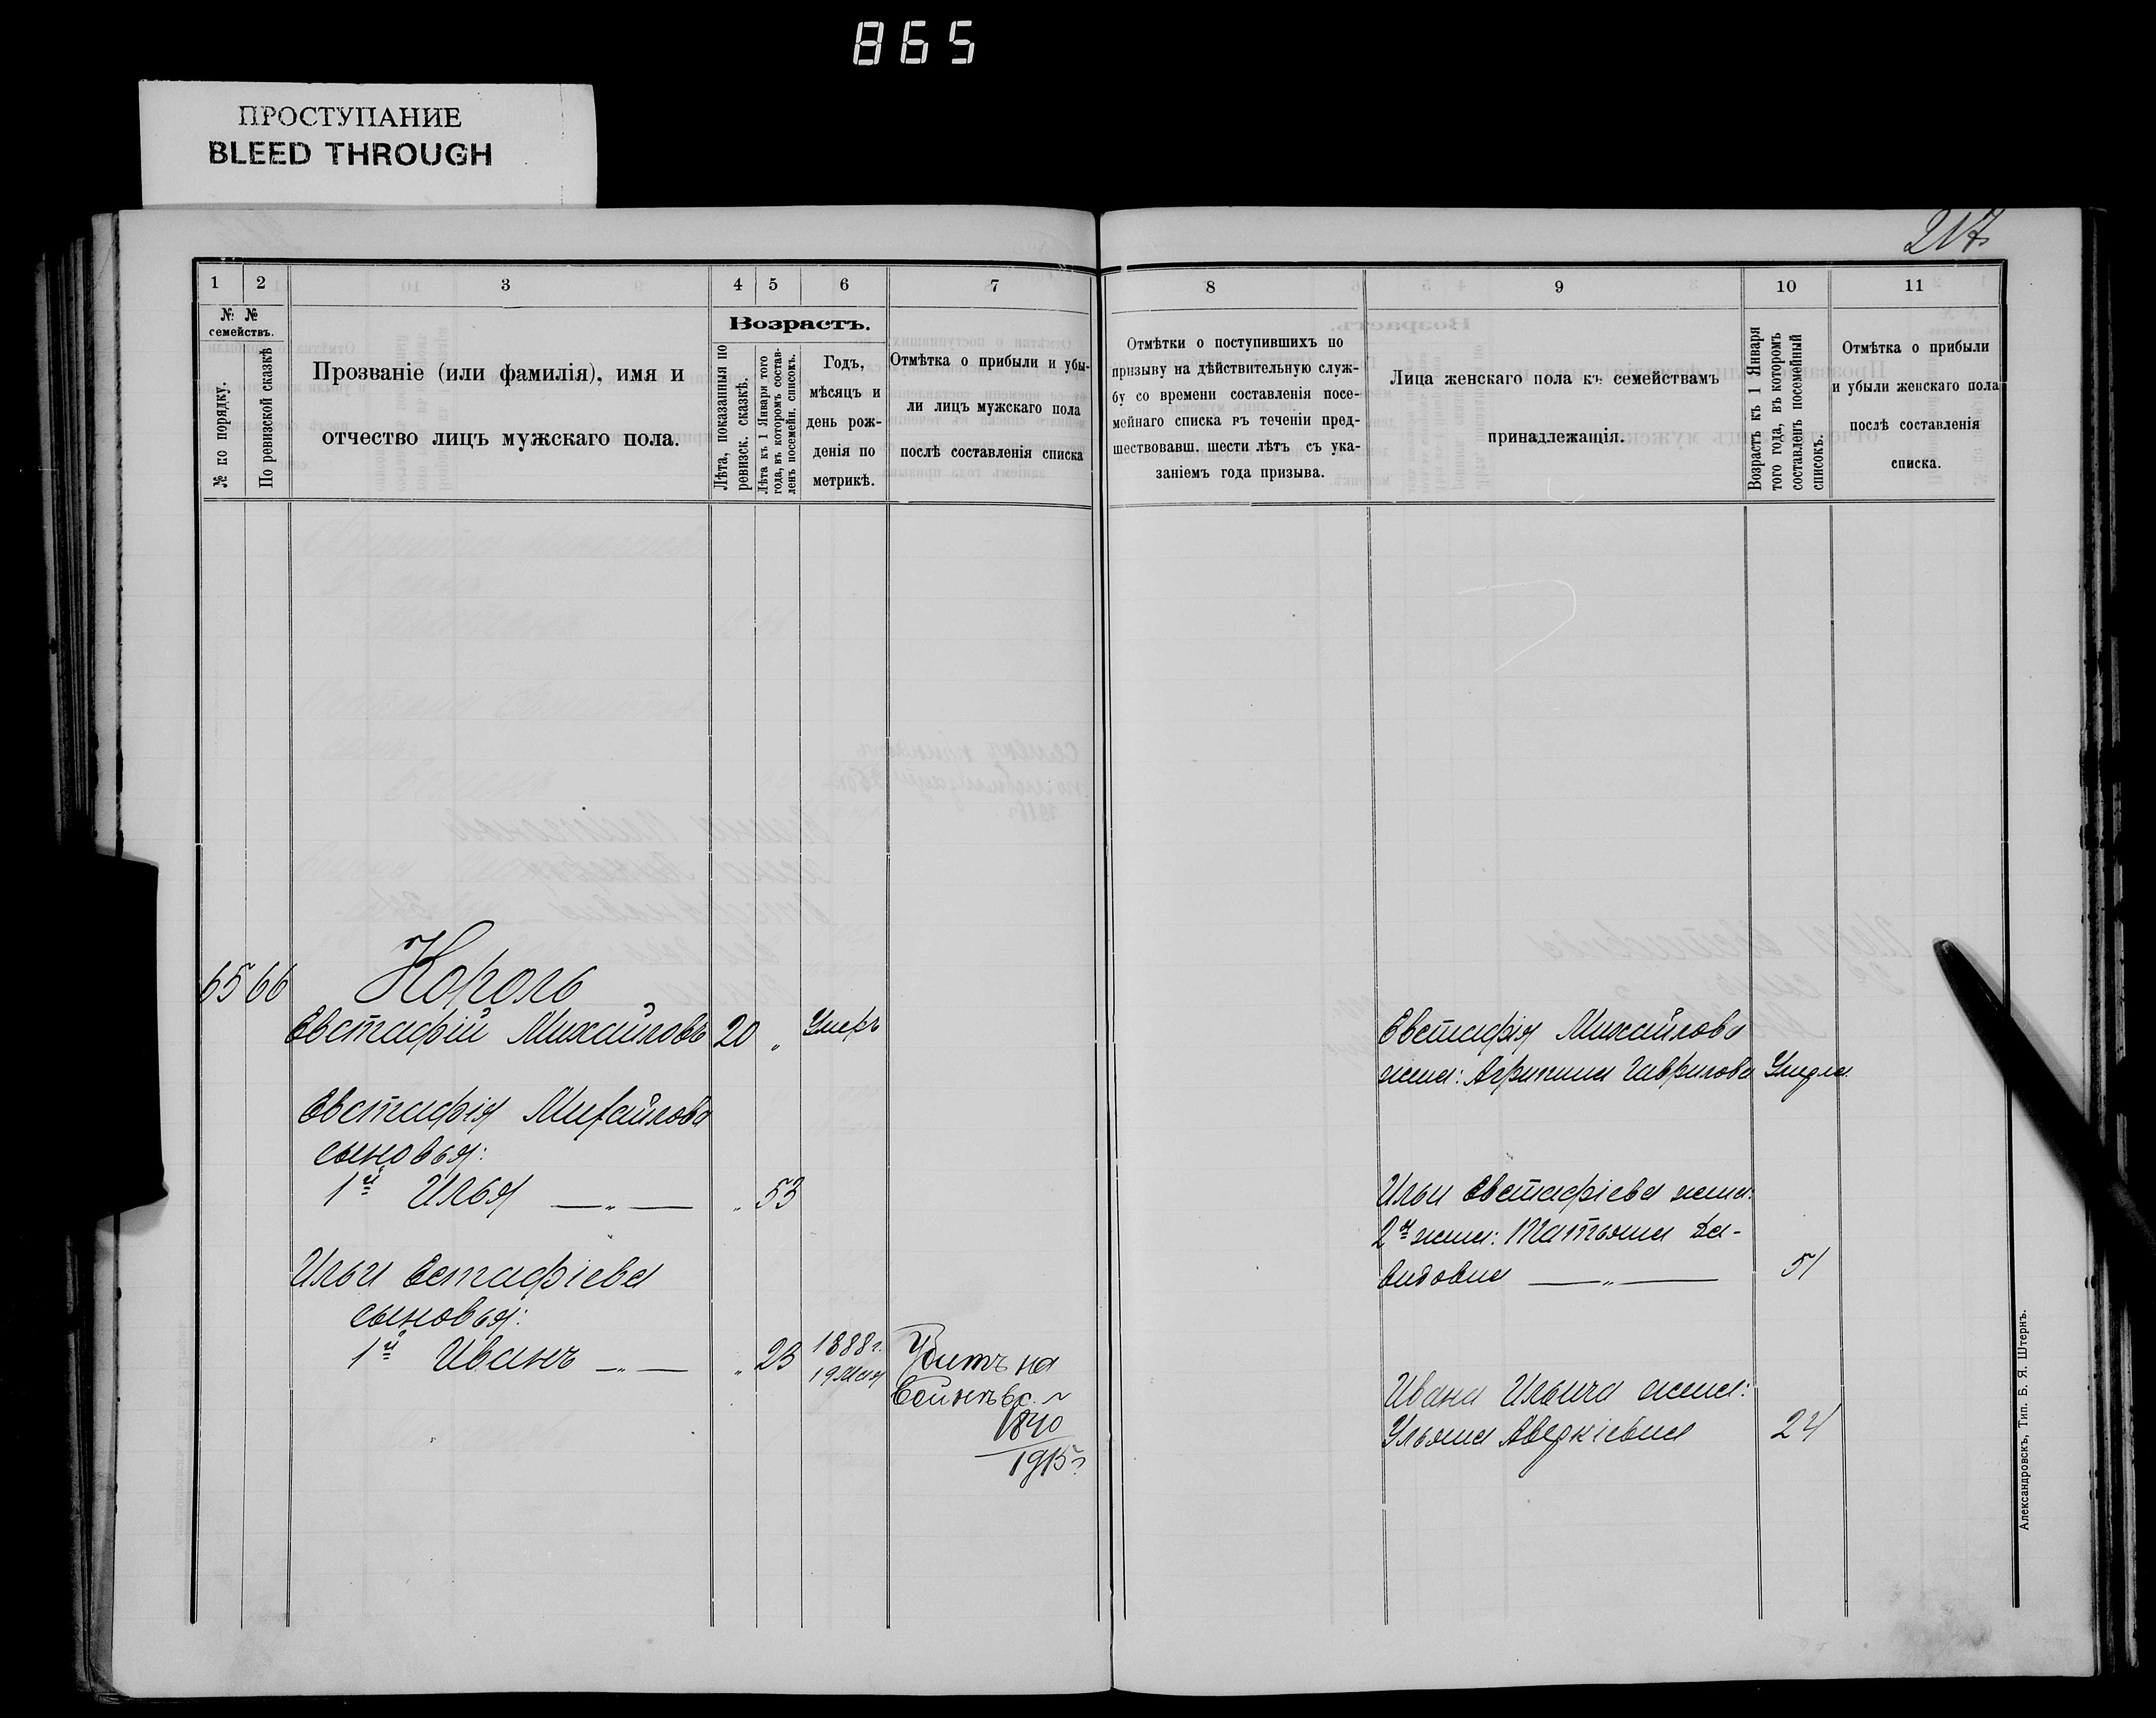 865
ПРОСТУПАНИЕ
BLEED THROUGH
217
1 2 3 4 5 6 7
№ №
семействъ.
№ по порядку.
По ревизской сказкѣ
Прозваніе (или фамилія), имя и
отчество лицъ мужскаго пола.
Возрастъ.
Лѣта, показанныя по
ревизск. сказкѣ.
Лѣта къ 1 Января того
года, въ которомъ состав-
ленъ посемейн. списокъ.
Годъ,
мѣсяцъ и
день рож-
денія по
метрикѣ.
Отмѣтка о прибыли и убы-
ли лицъ мужскаго пола
послѣ составленія списка
65 66 Король
Евстафій Михайловъ 20 „ Умеръ
Евстафія Михайлова
сыновья:
1й Илья —„— „ 53
Ильи Естафіева
сыновья:
1й Иванъ —„— „ 23 1888г.
19 Мая
Убитъ на
Войнѣ вх.
1840
1915г
8 9 10 11
Отмѣтки о поступившихъ по
призыву на дѣйствительную служ-
бу со времени составленія посе-
мейнаго списка въ теченіи пред-
шествовавш. шести лѣтъ съ ука-
заніемъ года призыва.
Лица женскаго пола къ семействамъ
принадлежащія.
Возрастъ къ 1 Января
того года, въ которомъ
составленъ посемейный
списокъ.
Отмѣтка о прибыли
и убыли женскаго пола
послѣ составленія
списка.
Евстафія Михайлова
жена: Агрипина Гаврилова Умерла
Ильи Евстафіева жена:
2я жена: Татьяна Да-
видовна —„— 51
Ивана Ильича жена:
Ульяна Аверкіевна 24
Александровскъ, Тип. Б. Я. Штернъ.